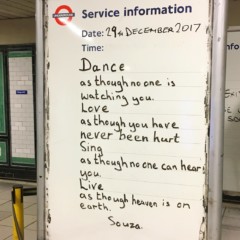 Service information
Date: 29th DECEMBER 2017
Time:
Dance
as though no one is
watching you.
Love
as though you have
never been hurt
Sing
as though no one can hear
you.
Live
as though heaven is on
earth.
Souza.